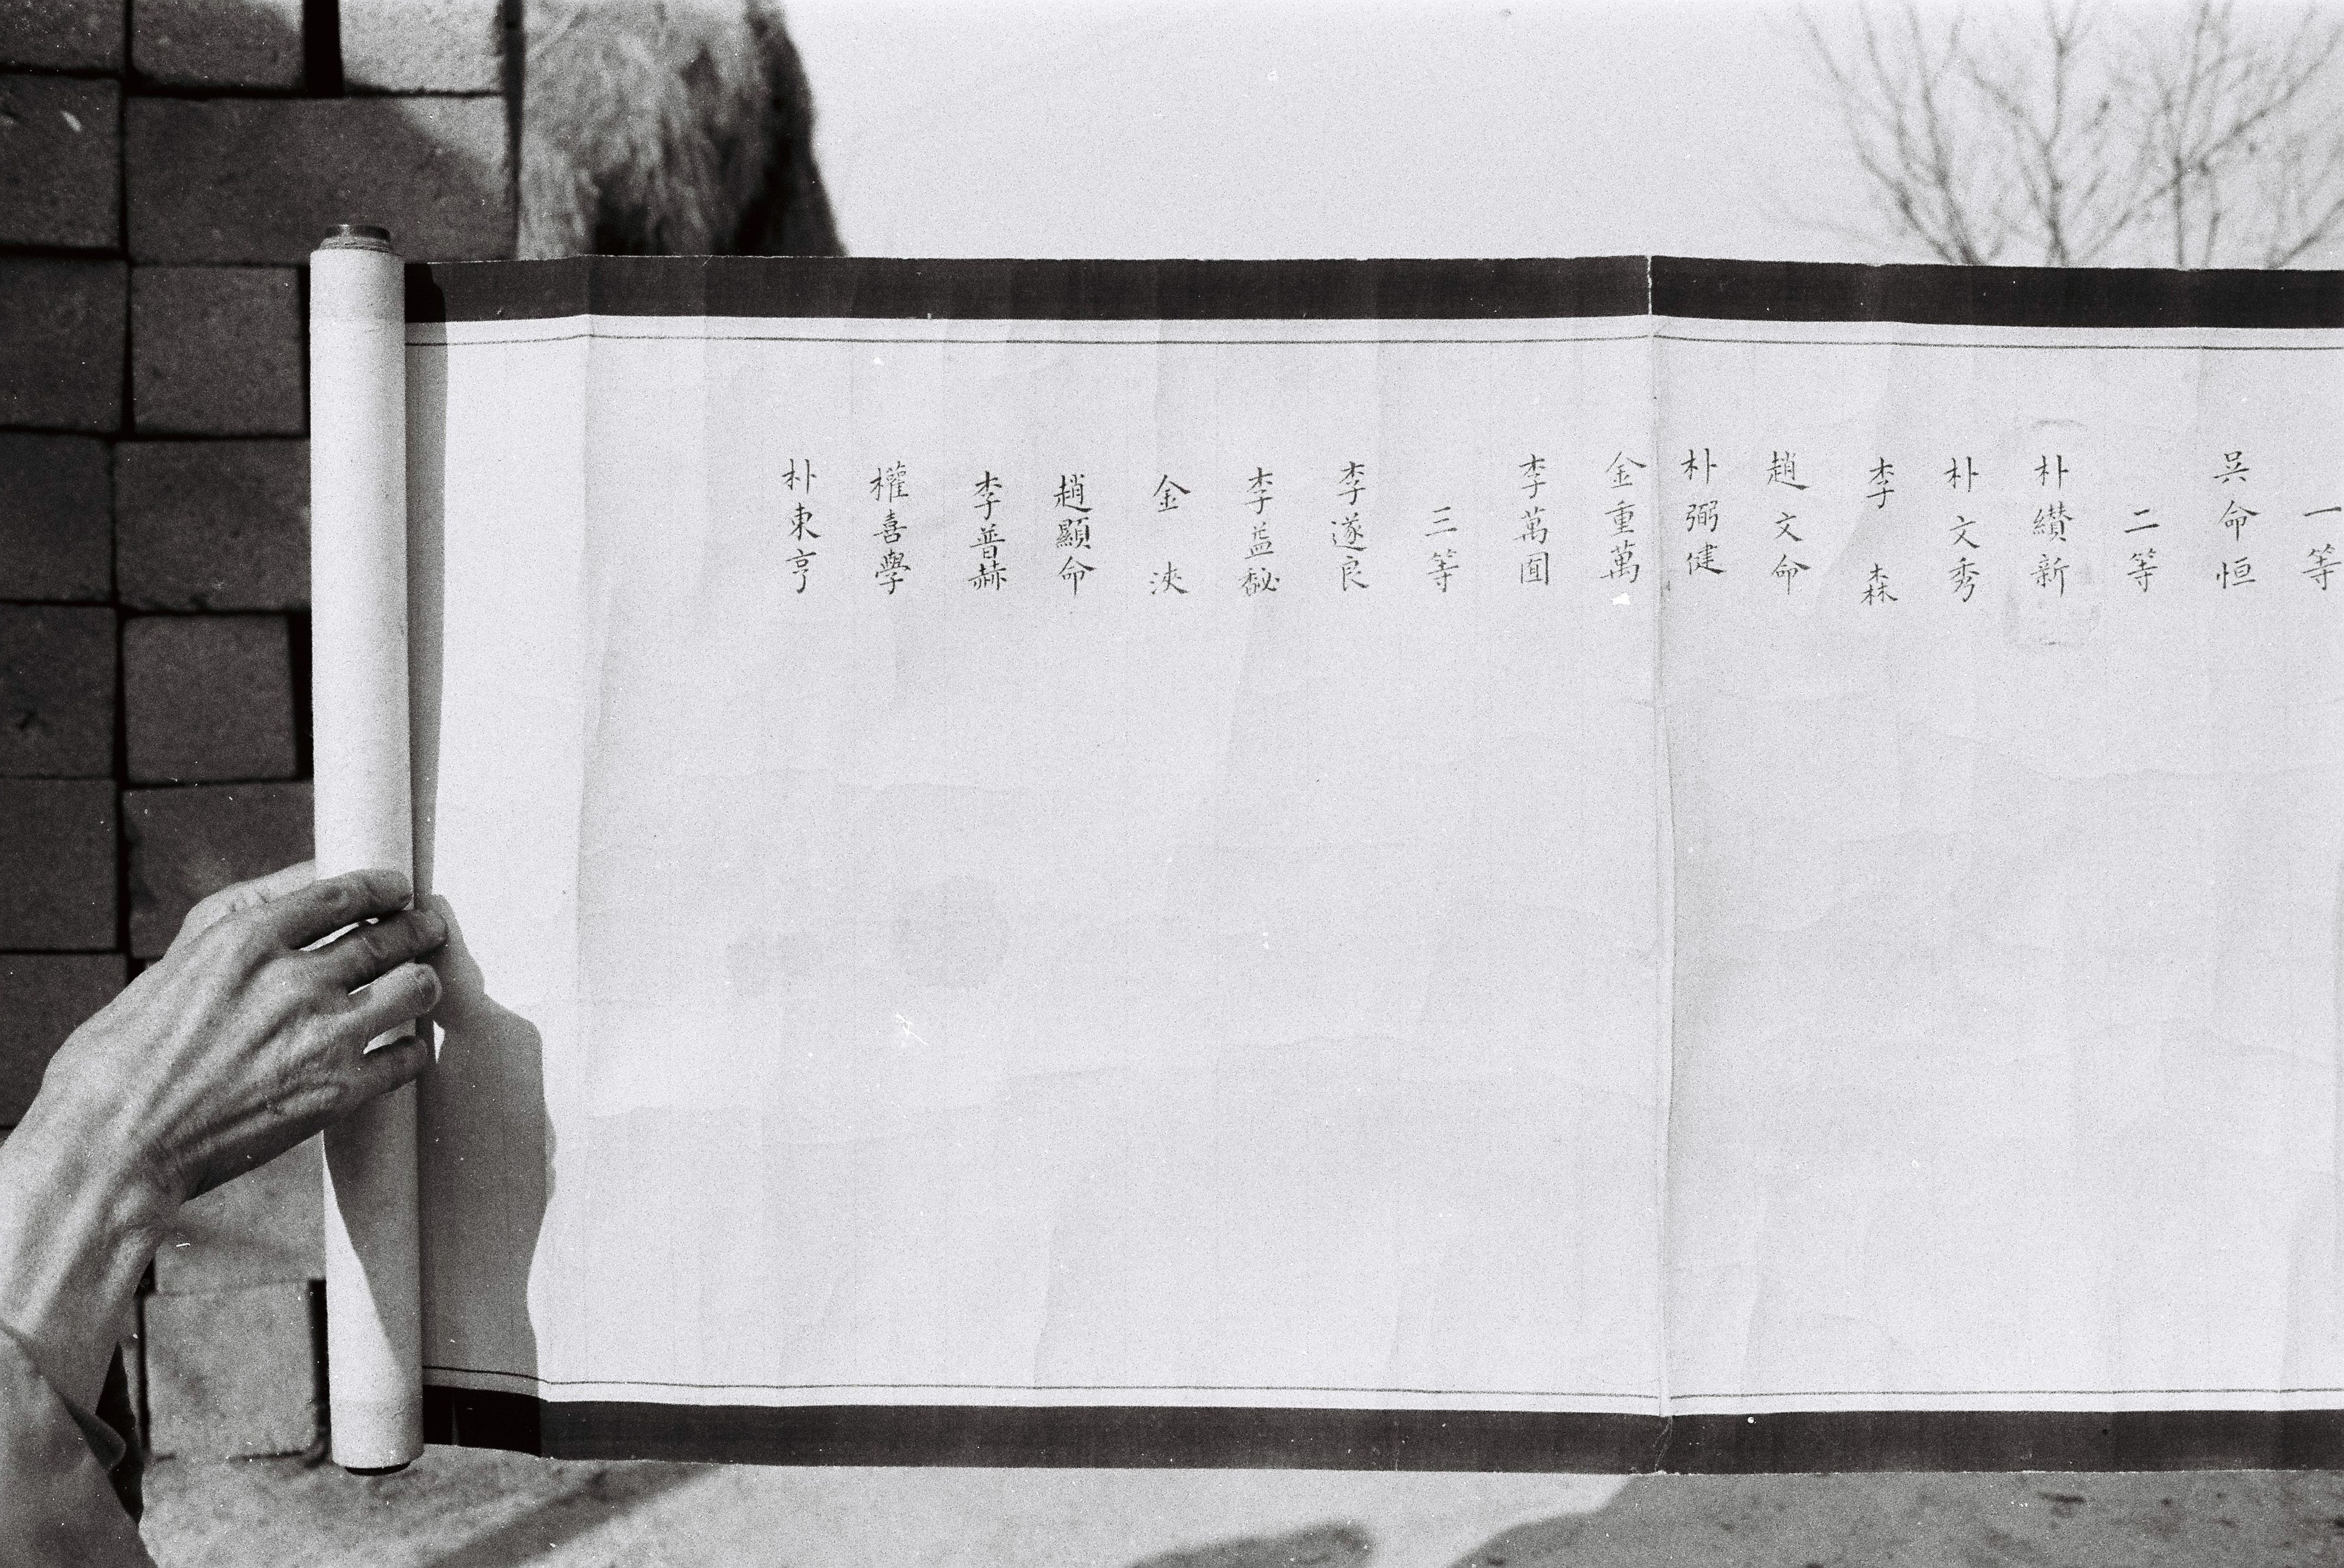 一等
吳命恒
二等
朴纘新
朴文秀
李森
趙文命
朴弼健
金重萬
李萬囿
三等
李遂良
李益馝
金浹
趙顯命
李普赫
權喜學
朴東亨